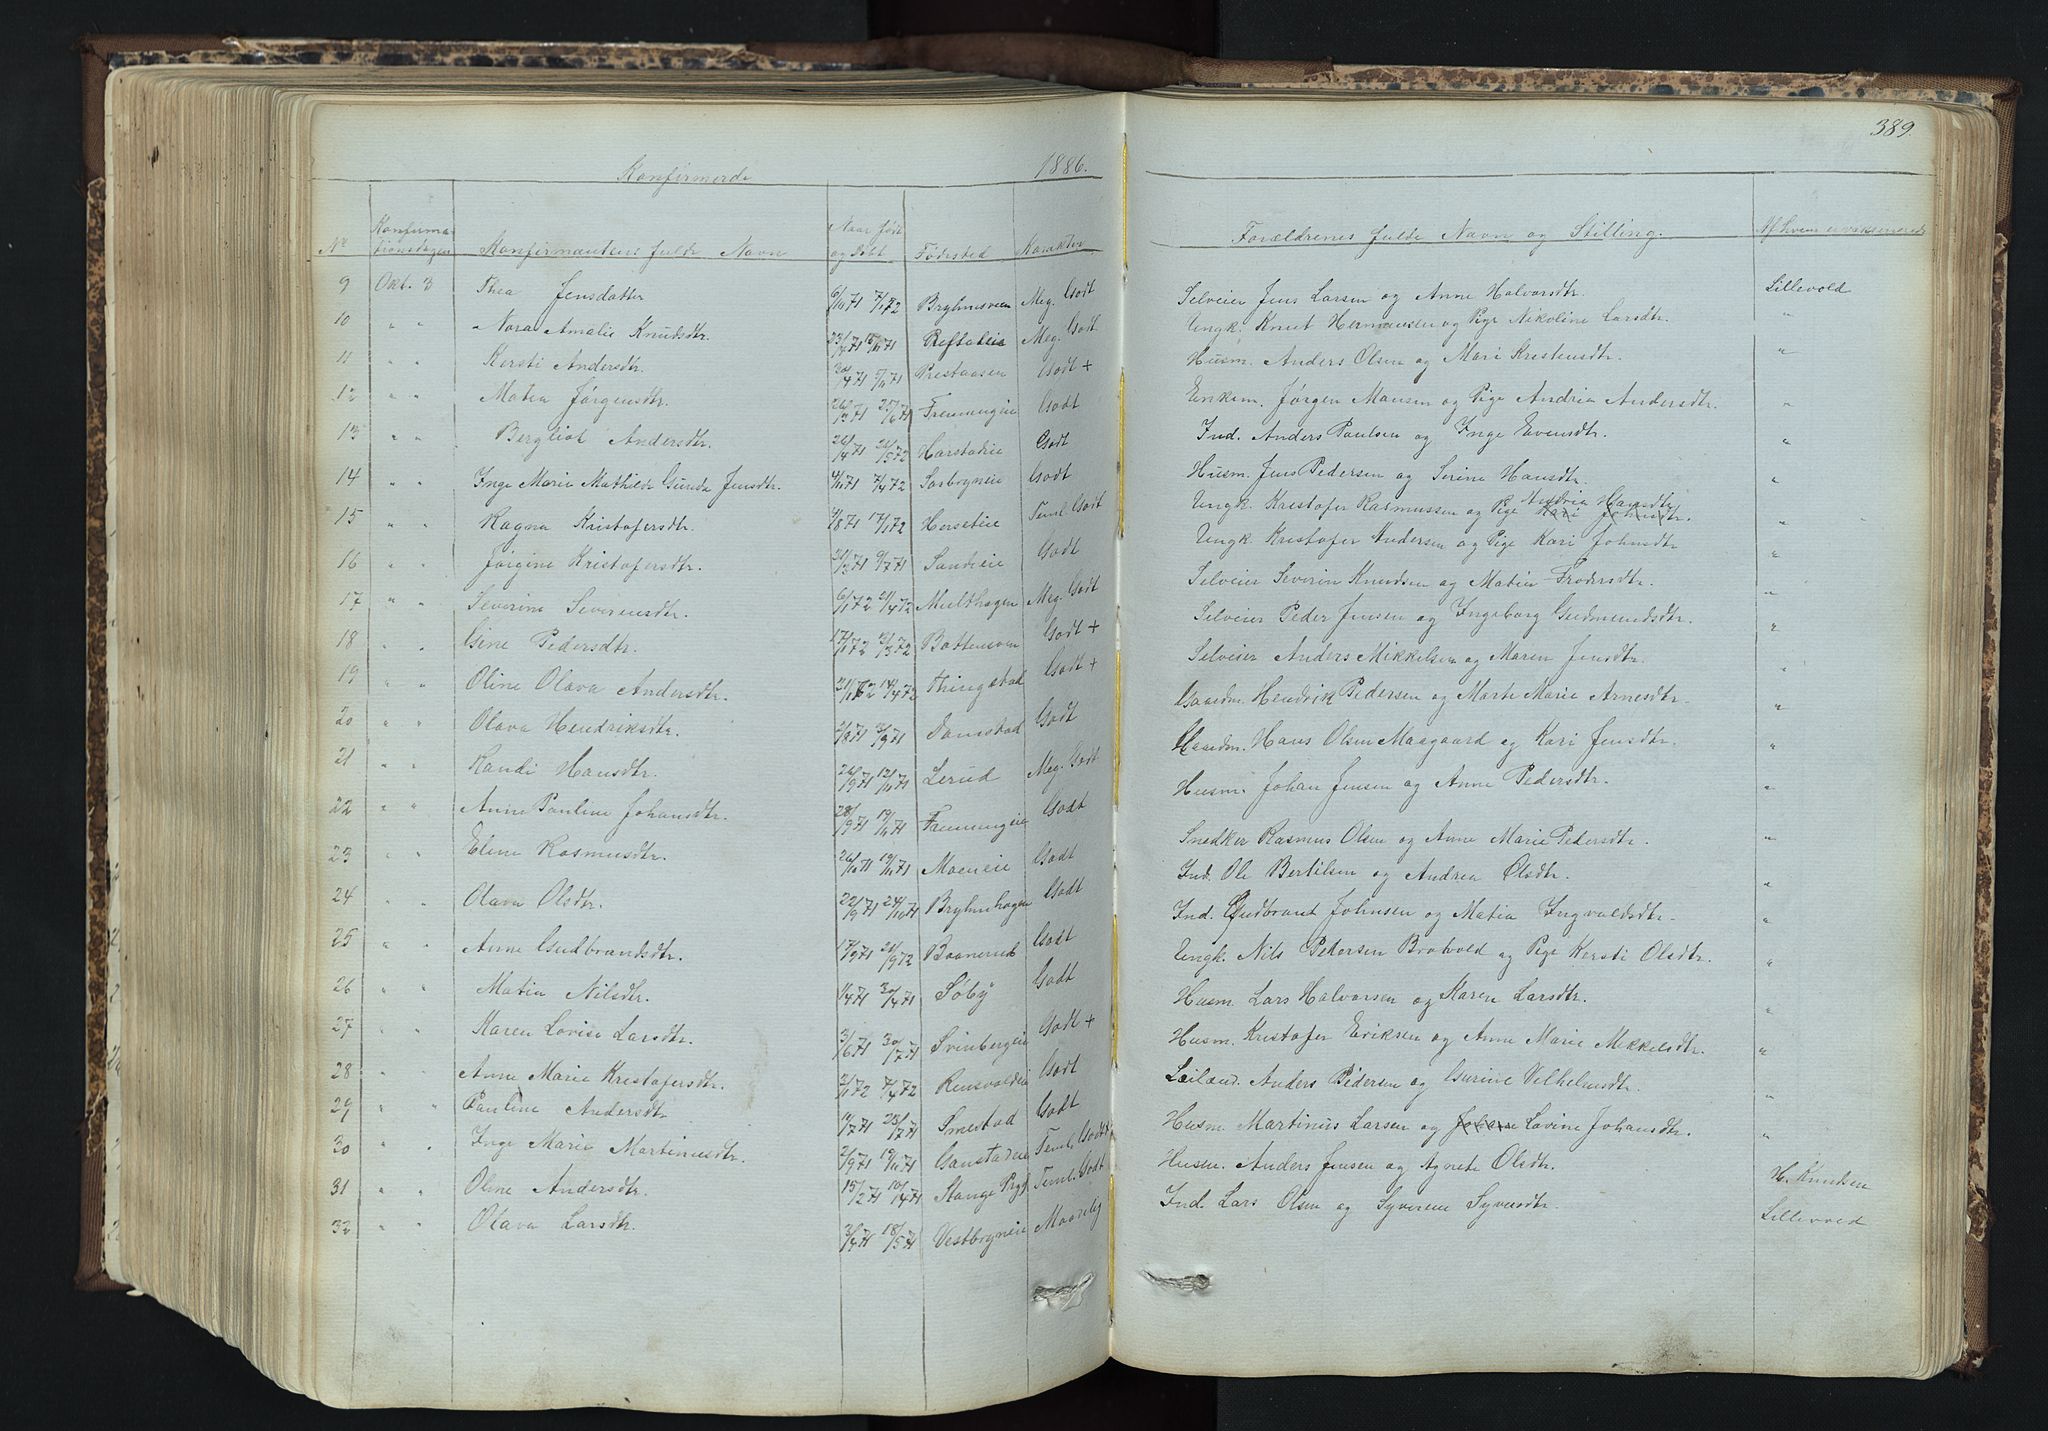 389.
Konfirmerde 1886.
No Konfirmationsdagen Konfirmantens fulde Navn Naar født og døbt Fødested Karakter Forældrenes fulde Navn og Stilling. Af hvem er vaksineret
9 Okt. 3 Thea Jensdatter 6/10 71 7/1 72 Brylmsveen Meg. Godt Selveier Jens Larsen og Anne Halvorsdtr. Lillevold
10 " " Nora Amalie Knudsdtr. 23/4 71 Reftaleie Meg. Godt Ungk. Knut Hermansen og Pige Nikoline Larsdtr. "
11 " " Kersti Andersdtr. Prestaasen Godt + Husm. Anders Olsen og Mari Kristensdtr. "
12 " " Matea Jørgensdtr. 25/6 71 Godt Enkem. Jørgen Mansen og Pige Andria Andersdtr. "
13 " " Bergliot Andersdtr. 26/4 71 26/5 72 Harstadeie Godt Ind. Anders Paulsen og Inge Evensdtr. "
14 " " Inge Marie Mathilde Gunda Jensdtr. 4/11 71 7/4 72 Sørbryneie Godt Husm. Jens Pedersen og Serine Hansdtr. "
15 " " Ragna Kristofersdtr. 17/1 72 Herseteie Teml. Godt Ungk. Kristofer Rasmussen og Pige Andria Hansdtr. Kari Johnsdtr. "
16 " " Jørgine Kristofersdtr. 9/7 71 Sandeie Godt Ungk. Kristofer Andersen og Pige Kari Johnsdtr "
17 " " Severine Severinsdtr. 6/1 72 21/4 72 Multhagen Meg. Godt Selveier Severin Knudsen og Matia Frodersdtr. "
18 " " Gine Pedersdtr. 17/1 72 31/3 72 Battensven Godt + Selveier Peder Jensen og Ingeborg Gudmundsdtr. "
19 " " Oline Olava Andersdtr. 14/4 72 Thingstad Godt + Selveier Anders Mikkelsen og Maren Jensdtr. "
20 " " Olava Hendriksdtr. 2/8 71 3/9 71 Damstad Godt Gaardm. Hendrik Pedersen og Marte Marie Arnesdtr. "
21 " " Randi Hansdtr. 26/9 71 12/11 71 Lerud Meg. Godt Gaardm. Hans Olsen Maagaard og Kari Jensdtr. "
22 " " Anne Pauline Johansdtr. 28/9 71 19/11 71 Godt Husm. Johan Jensen og Anne Pedersdtr. "
23 " " Eline Rasmusdtr. 26/10 71 19/11 71 Moeneie Godt Snedker Rasmus Olsen og Anne Marie Pedersdtr. "
24 " " Olava Olsdtr. 22/9 71 24/10 71 Brylmhagen Godt Ind. Ole Bertilsen og Andrea Olsdtr. "
25 " " Anne Gudbrandsdtr. 17/9 71 21/9 72 Baanerud Godt Ind. Gudbrant Johnsen og Matia Ingvaldsdtr. "
26 " " Matia Nilsdtr. 1/4 71 30/4 71 Søby Godt Ungk. Nils Pedersen Bratvold og Pige Kersti Olsdtr. "
27 " " Karen Lovise Larsdtr. 3/6 71 30/7 71 Svinbergeie Godt + Husm. Lars Halvorsen og Karen Larsdtr. "
28 " " Anne Marie Kristofersdtr. 2/1 72 7/4 72 Rensvoldeie Godt Husm. Kristofer Eriksen og Anne Marie Mikkelsdtr. "
29 " " Pauline Andersdtr 14/7 71 23/7 71 Smestad Godt Leilænd. Anders Pedersen og Gurine Vilhelmsdtr. "
30 " " Inge Marie Martinusdtr. 2/9 71 19/11 71 Gaustadeie Teml. Godt+ Husm. Martinus Larsen og Johane Lovine Johansdtr. "
31 " " Oline Andersdtr. 15/2 71 Stange Prgj. Teml. Godt Husm. Anders Jensen og Agnete Olsdtr. H. Knudsen
32 " " Olava Larsdtr. 3/4 71 18/5 71 Vestbryneie Maadelig Ind. Lars Olsen og Syverine Syversdtr. Lillevold